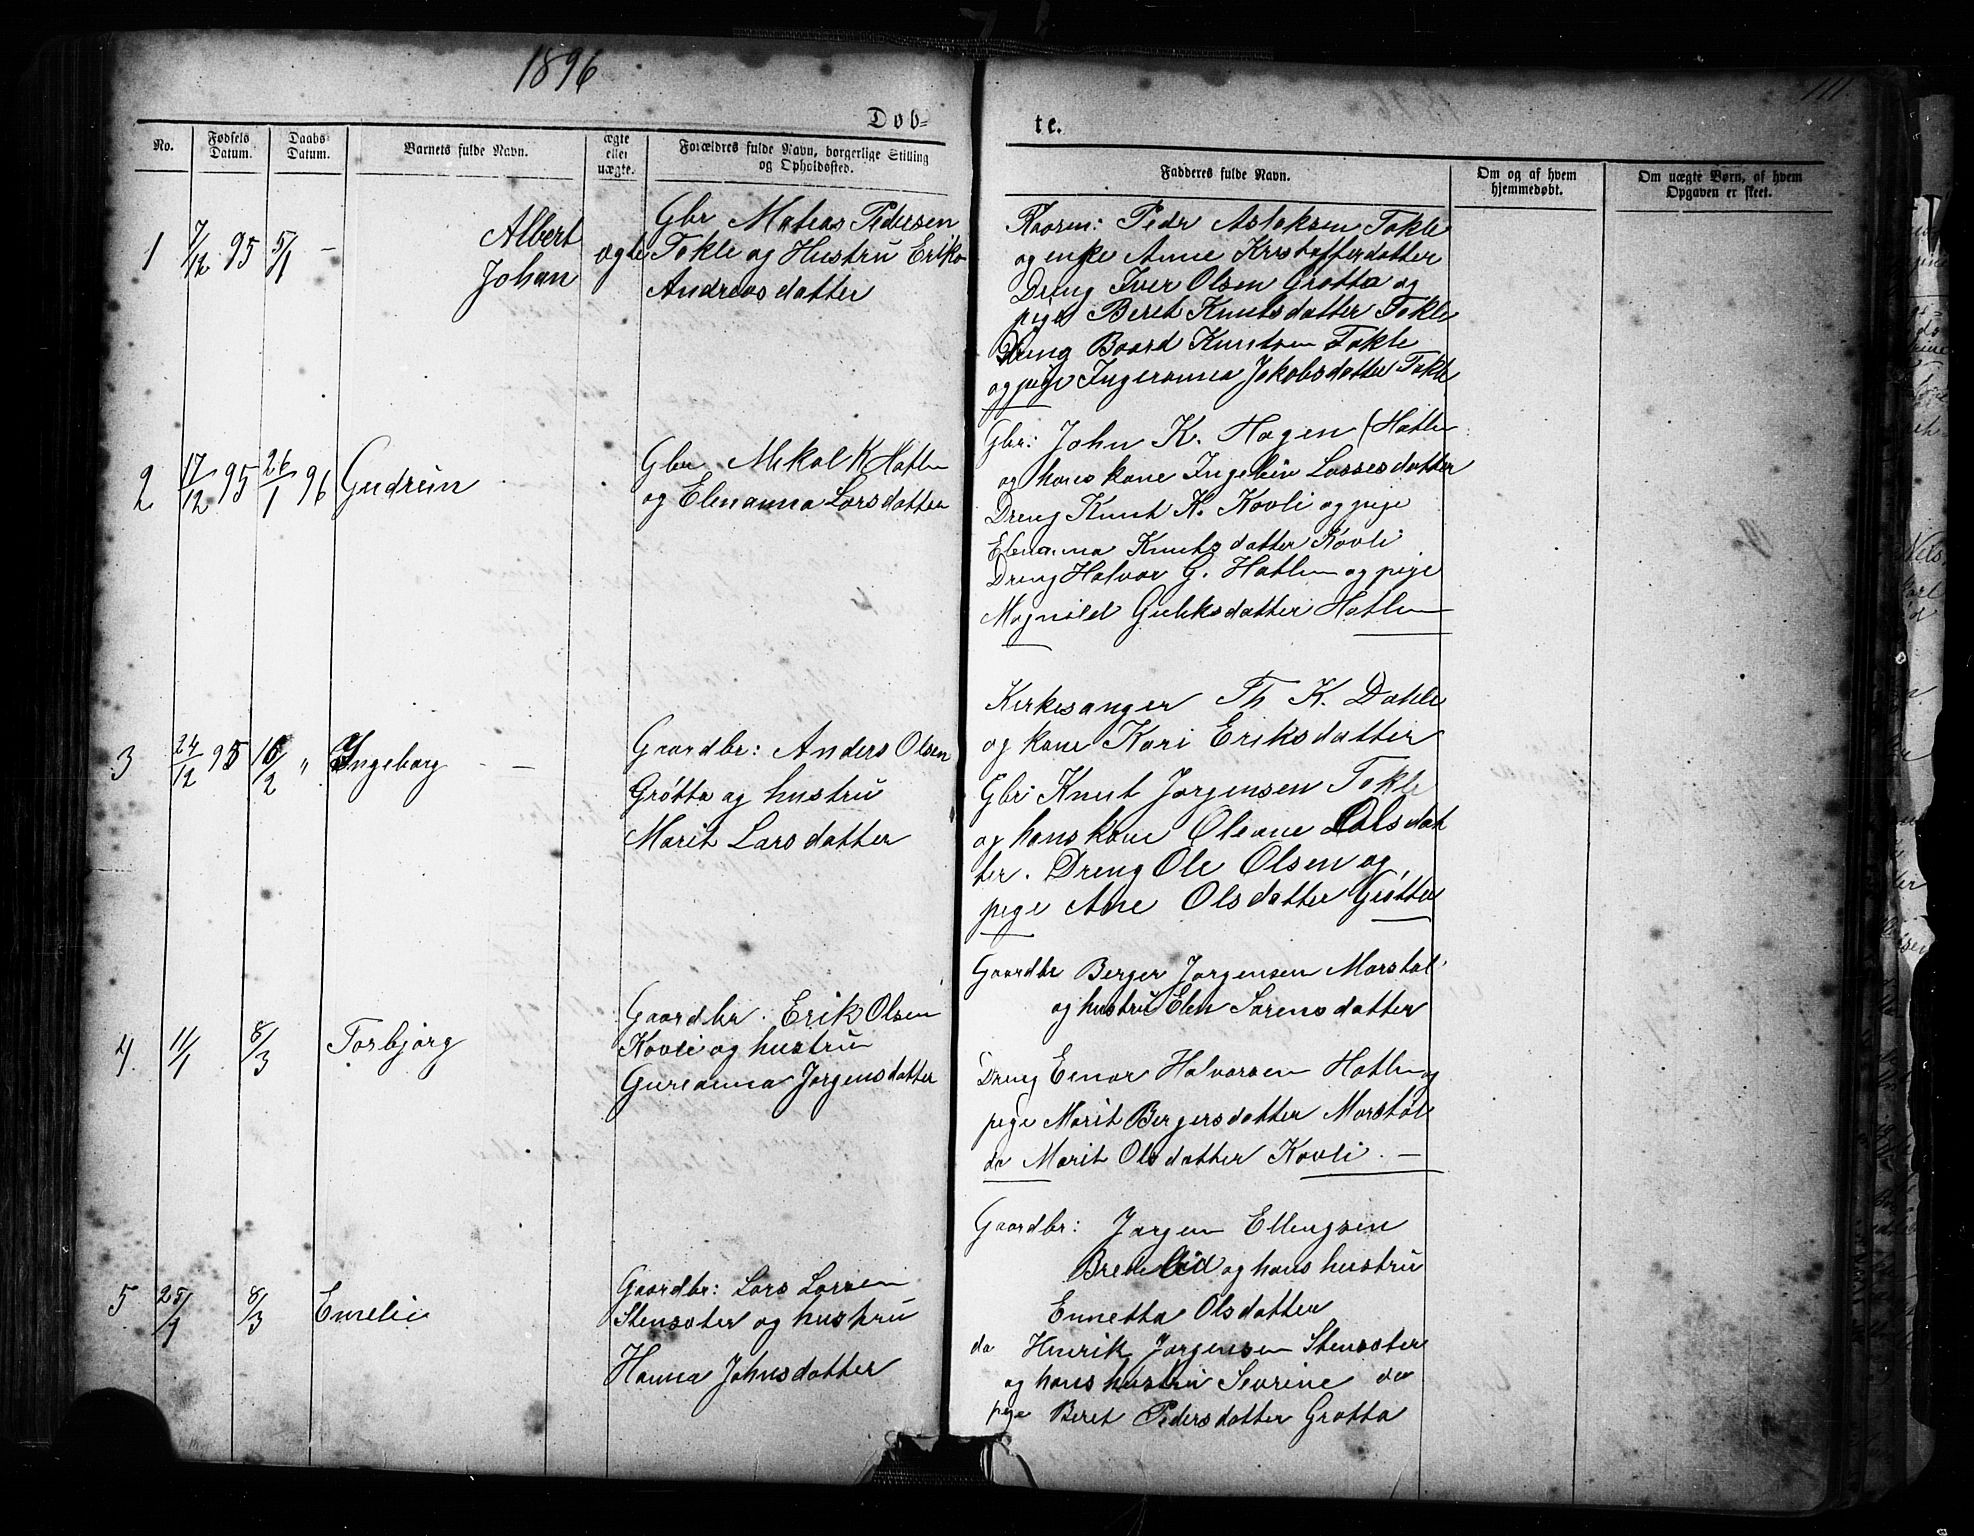 1896
111
Døb-
te.
No.
Fødsels Datum.
Daabs Datum.
Barnets fulde Navn.
ægte eller uægte.
Forældres fulde Navn, borgerlige Stilling og Opholdssted.
Fadderes fulde Navn.
Om og af hvem hjemmedøbt.
Om uægte Børn, af hvem Opgaven er skeet.
1 7/12 95 5/1 –
Albert
Johan
ægte
Gbr Matias Pedersen
Tokle og Hustru Erika
Andreas datter
Peder Aslaksen Tokle
og enke Anne Kristofferdatter
Dreng Iver Olsen Grøtta og
pige Beret Knutsdatter Tokle
Dreng Baard Knutsen Tokle
og pige Ingeranna Jakobsdatter Tokle
2 17/12 95 26/1 96 Gudrun
Gbr Mikal K. Hatlen
og Elenanna Larsdatter
Gbr: John K. Hagen (Hatlen
og hans kone Ingebör Lassesdatter
Dreng Knut K. Kovli og pige
Elenanna Knuts datter Kovli
Dreng Halvor G. Hatlen og pige
Magnild Guliksdatter Hatlen
3 24/12 95 16/2 " Ingeborg –
Gaardbr: Anders Olsen
Grøtta og hustru
Marit Larsdatter
Kirkesanger Th K. Dahle
og kone Kari Eriksdatter
Gbr: Knut Jørgensen Tokle
og hans kone Oleane Olsdat
ter. Dreng Ole Olsen og
pige Ane Olsdatter Grøtta
4 11/1 8/3 Torbjørg
Gaardbr. Erik Olsen
Kovli og hustru
Gureanna Jørgensdatter
Gaardbr Berger Jørgensen Marstøl
og hustru Elen Sørensdatter
Dreng Einar Halvorsen Hatlen og
pige Marit Bergersdatter Marstøl
do Marit Olsdatter Kovli. –
5 25/1 8/3 Emelie
Gaardbr: Lars Larsen
Stensæter og hustru
Hanna Johnsdatter
Gaardbr: Jørgen Ellingsen
Bredelid og hans hustru
Ennetta Olsdatter
do Henrik Jørgensen Stensæter
og hans hustru Sevrine do
pige Beret Pedersdatter Grøtta